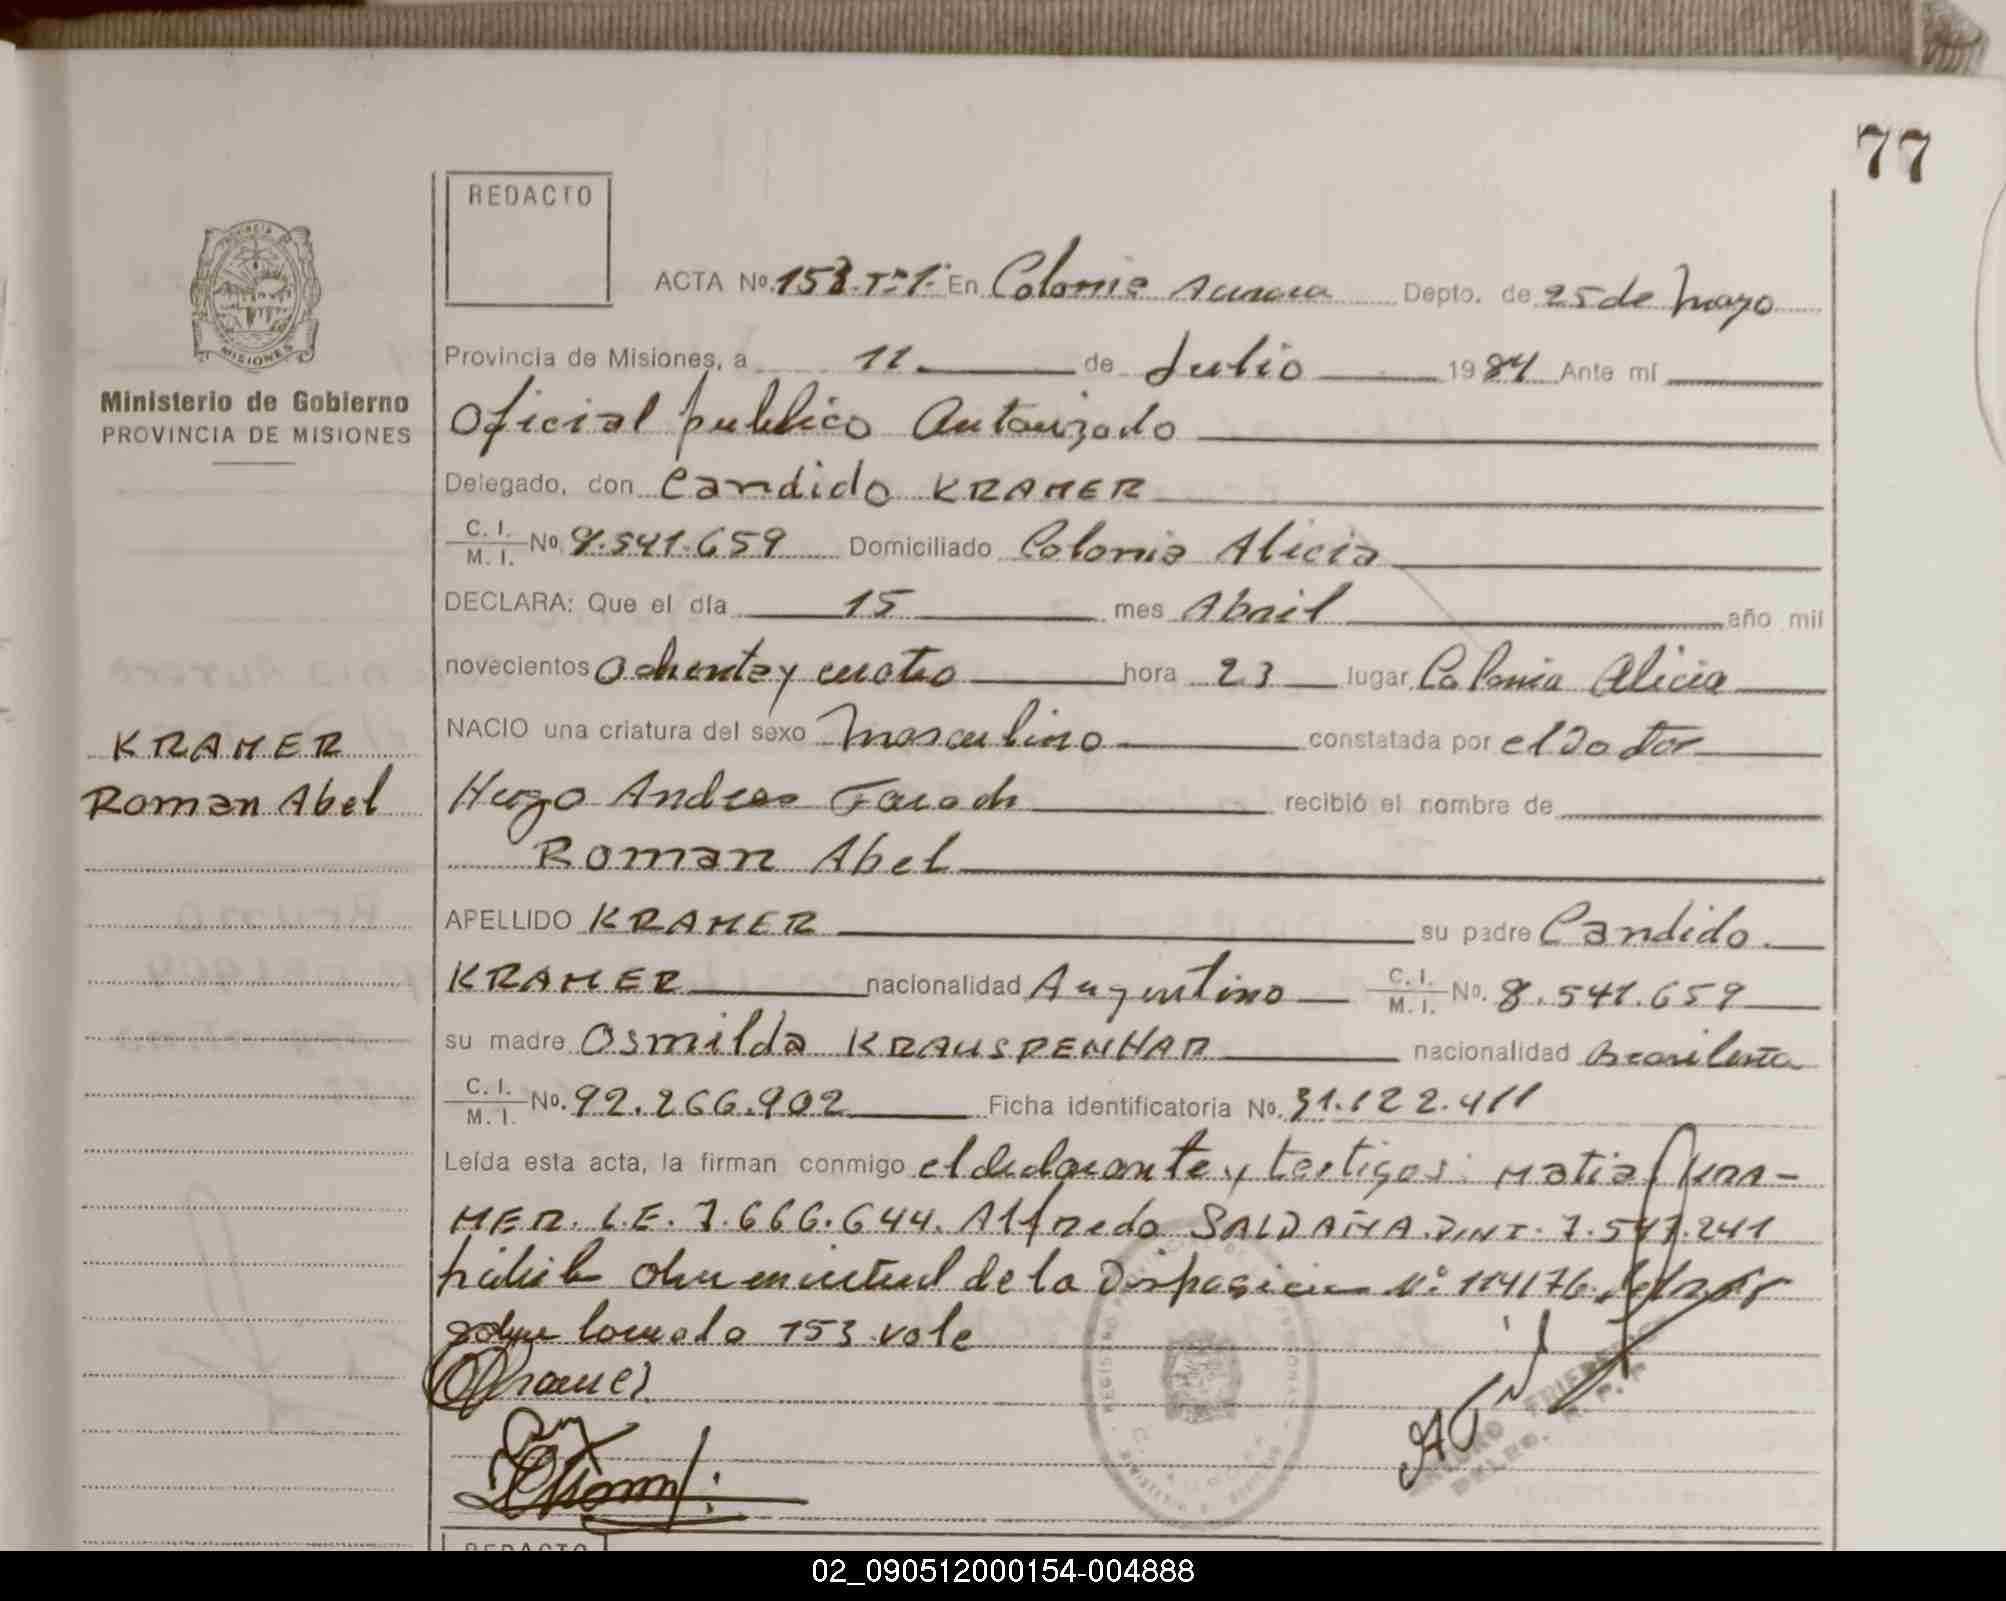 77
REDACTO
PROVINCIA DE
MISIONES
Ministerio de Gobierno
PROVINCIA DE MISIONES
ACTA No. 153. Tº 1º En Colonia Aurora Depto. de 25 de Mayo
Provincia de Misiones, a 11 de Julio 1984 Ante mí
Oficial publico Autorizado
Delegado, don Candido KRAMER
C. I.
M. I. No. 8.541.659 Domiciliado Colonia Alicia
DECLARA: Que el día 15 mes Abril año mil
novecientos Ochenta y cuatro hora 23 lugar Colonia Alicia
NACIO una criatura del sexo Masculino constatada por el Doctor
Hugo Andres recibió el nombre de
Roman Abel
KRAMER
Roman Abel
APELLIDO KRAMER su padre Candido
KRAMER nacionalidad Argentino C. I.
M. I. No. 8.541.659
su madre Osmilda KRAUSPENHAR nacionalidad Brasileña
C. I.
M. I. No. 92.266.902 Ficha identificatoria No. 31.122.411
Leída esta acta, la firman conmigo el declarante y testigos: Matias KRA-
MER. L.E. 7.666.644. Alfredo SALDAÑA. D.N.I. 7.547.241
en virtud de la Disposicion Nº 114/76.
sobre borrado 153 vale
REDACTO
02_090512000154-004888